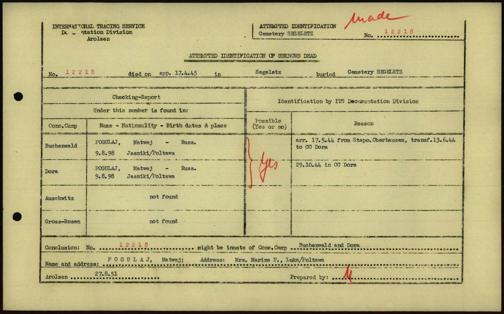 INTERNATIONAL TRACING SERVICE
Documentation Division
Arolsen
ATTEMPTED IDENTIFICATION
Cemetery SEGELETZ
No. 12218
made
ATTEMPTED IDENTIFICATION OF UNKNOWN DEAD
No. 12218 died on app. 17.4.45 in Segeletz buried Cemetery SEGELETZ
Checking-Report
Under this number is found in:
Identification by ITS Documentation Division
Conc.Camp
Name - Nationality - Birth dates & place
Possible
(Yes or no)
Reason
Buchenwald
POGULAJ, Matwej - Russ.
9.8.98 Jasniki/Poltawa
arr. 17.5.44 from Stapo. Oberhausen, transf.13.6.44
to CC Dora
Yes
Dora
POGULAJ, Matwej - Russ.
9.8.98 Jasniki/Poltawa
29.10.44 in CC Dora
Auschwitz
not found
Gross-Rosen
not found
Conclusion: No. 12218 might be inmate of Conc.Camp Buchenwald and Dora
Name and address: POGULAJ, Matwej; Address: Mrs. Marine P., Luka/Poltawa
Arolsen 27.8.51 Prepared by: